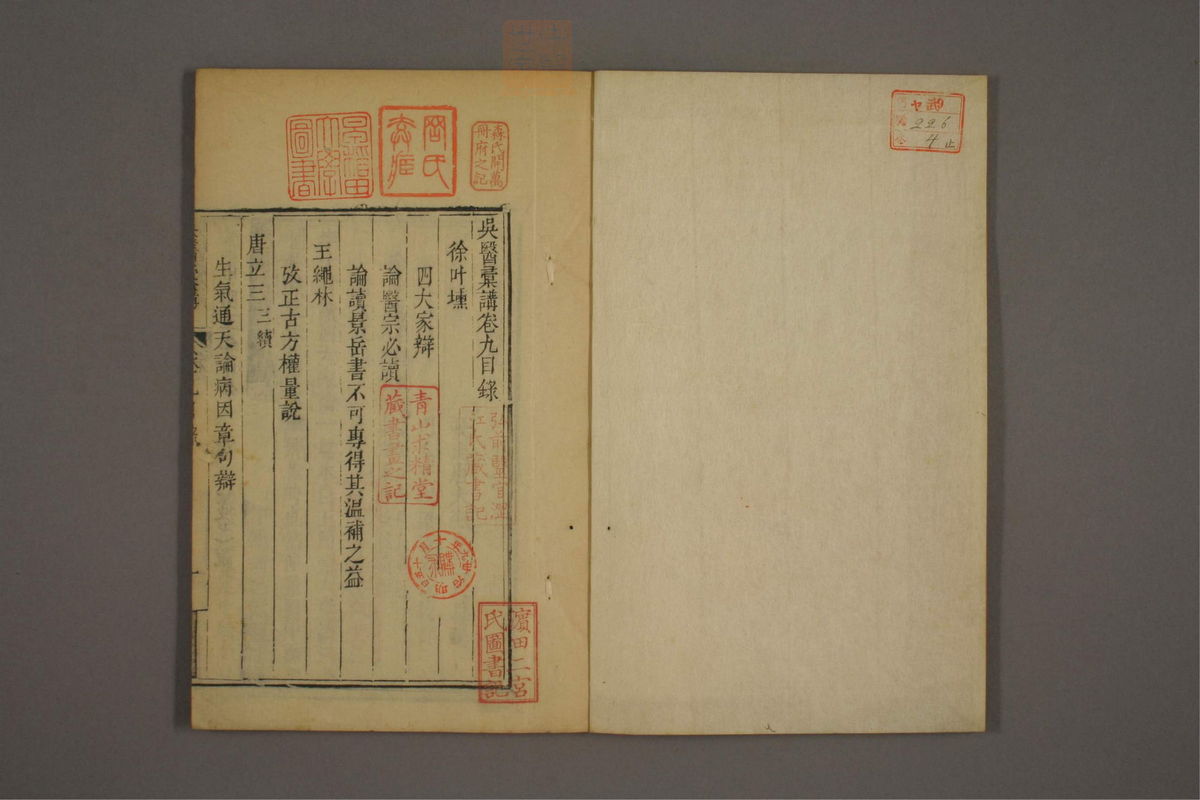 吳醫彙講卷九目錄
徐叶壎
四大家辯
論醫宗必讀
論讀景岳書不可專得其溫補之益
王繩林
攷正古方權量說
唐立三三續
生氣通天論病因章句辯
森氏開萬
冊府之記
青山求精堂
藏書畫之記
弘前醫官澀
江氏藏書記
濱田二宮
氏圖書記
226
4 止